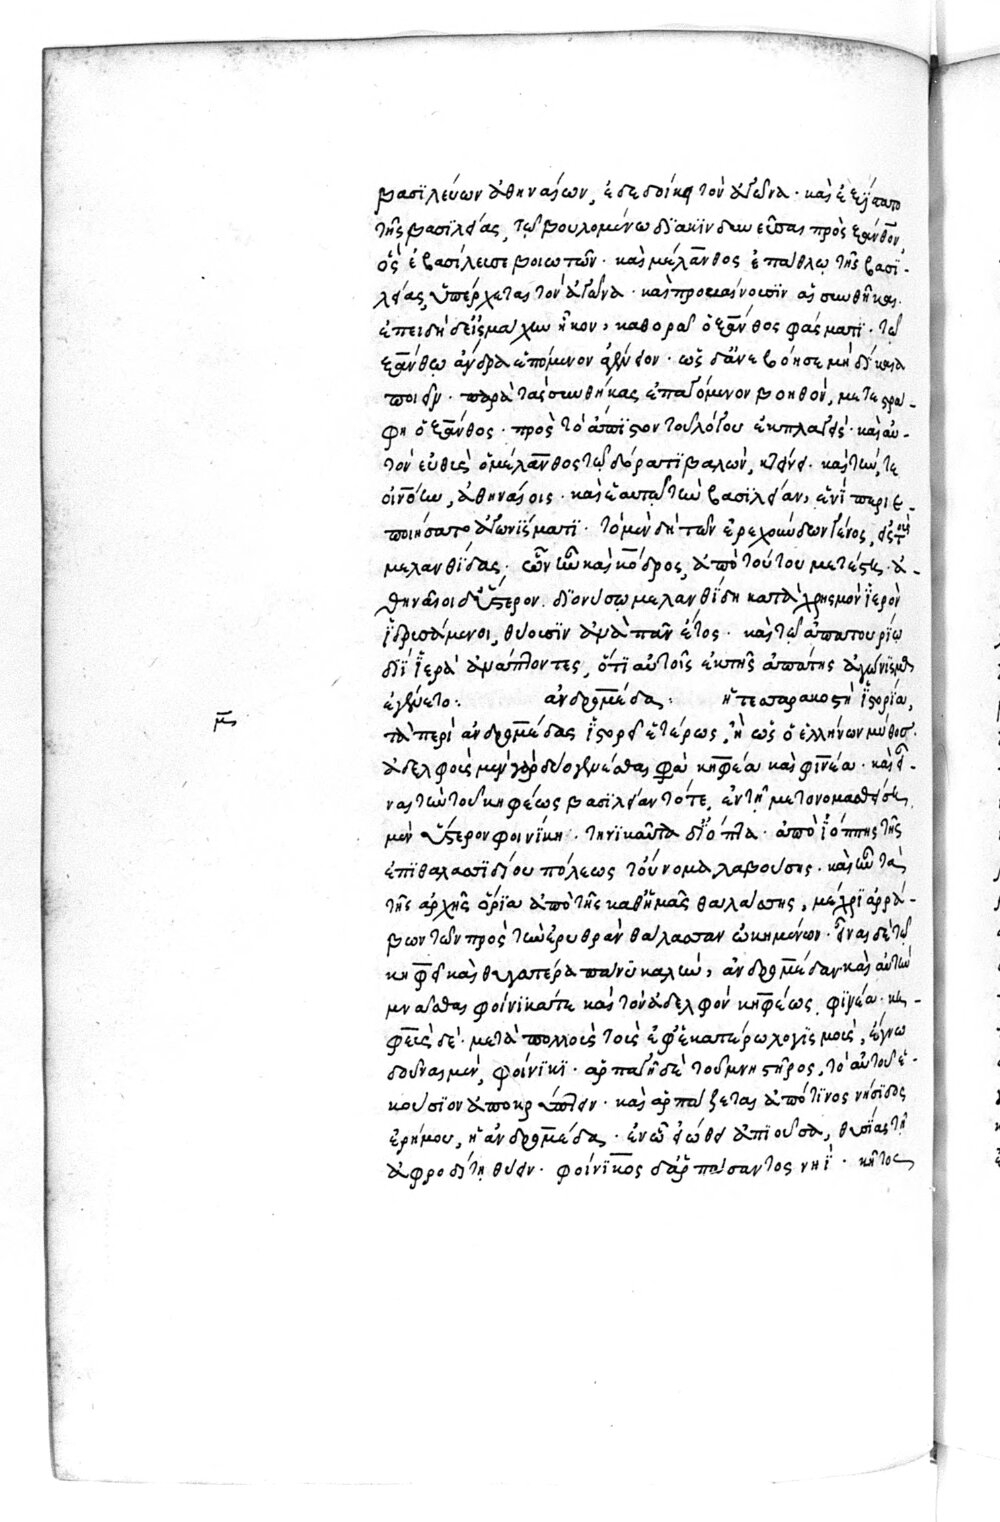 βασϊλεύων ἀθηναίων, ἐδεδοίκει τὸν ἀγῶνα · καὶ ἐξίστατο
τῆς βασϊλείας, τῶ βουλομένω διακινδυνεῦσαι πρὸς ξάνθον,
ὃς ἐβασίλευσε βοιωτῶν · καὶ μέλανθος ἐπαθλω τῆς βασϊ-
λείας, ὑπέρχεται τὸν ἀγῶνα · καὶ προβαίνουσϊν αἱ συνθῆκαι ·
ἐπειδὴ δ' εἰς μάχην ἧκον, καθορᾶ ὁ ξάνθος φάσματϊ · τῶ
ξάνθω ἄνδρα ἑπόμενον ἀγένειον · ὡς δ' ἀνεβόησε μὴ δίκαια
ποιεῖν · παρὰ τὰς συνθήκας ἐπαγόμενον βοηθόν, μετεστρά-
φη ὁ ξάνθος · πρὸς τὸ ἄπϊστον τοῦ λόγου ἐκπλαγεὶς · καὶ αὐ-
τὸν εὐθὺς ὁ μέλανθος τῶ δόρατϊ βαλὼν, κτείνει · καὶ τήν, τε
οἰνόην, ἀθηναίοις · καὶ ἑαυτῶ τὴν βασϊλείαν, ἑνὶ περιε-
ποιήσατο ἀγωνίσματϊ · τὸ μὲν δὴ τῶν ἐρεχθειδῶν γένος, εἰς τοὺς
μελανθίδας · ὧν ἦν καὶ κόδρος, ἀπὸ τούτου μετέστη · ἀ-
θηναῖοι δ' ὕστερον διονύσω μελανθίδη κατὰ χρησμὸν ἱερὸν
ἱδρυσάμενοι, θύουσϊν ἀνὰ πᾶν ἔτος · καὶ τῶ ἀπατουρίω
διῒ ἱερὰ ἀνάπτοντες, ὅτϊ αὐτοῖς ἐκ τῆς ἀπάτης ἀγώνισμα
ἐγένετο · ἀνδρομέδα · ἡ τεσσαρακοστὴ ἱστορία,
μ̅
τὰ περὶ ἀνδρομέδας ἱστορεῖ ἑτέρως, ἢ ὡς ὁ ἑλλήνων μῦθος ·
ἀδελφοὺς μὲν γὰρ δύο γενέσθαι φησὶ κηφέα καὶ φινέα · καὶ εἶ-
ναι τὴν τοῦ κηφέως βασϊλείαν τότε, ἐν τῆ μετονομασθείση
μὲν ὕστερον φοινίκη · τηνικαῦτα δ' ϊόππα · ἀπὸ ϊόππης τῆς
ἐπϊθαλασσϊδίου πόλεως τοὔνομα λαβούσης · καὶ ἦν τὰ
τῆς ἀρχῆς ὅρια ἀπὸ τῆς καθ' ἡμᾶς θαλάσσης, μέχρϊ ἀρρά-
βων τῶν πρὸς τὴν ἐρυθρὰν θάλασσαν ὠκημένων · εἶναι δὲ τῶ
κηφεῖ καὶ θυγατέρα πάνυ καλὴν, ἀνδρομέδαν καὶ αὐτὴν
μνᾶσθαι φοίνικά τε καὶ τὸν ἀδελφὸν κηφέως, φινέα · κη-
φεὺς δὲ · μετὰ πολλοὺς τοὺς ἐφ' ἑκατέρω λογισμοὺς, ἔγνω
δοῦναι μὲν, φοίνικϊ · ἁρπαγῆ δὲ τοῦ μνηστῆρος, τὸ αὑτοῦ ἑ-
κούσϊον ἀποκρύπτειν · καὶ ἁρπάζεται ἀπό τινος νησίδος
ἐρήμου, ἡ ἀνδρομέδα · ἐν ὧ εἰώθει ἀπιοῦσα, θυσίας τῆ
ἀφροδίτη θύειν · φοίνικος δ' ἁρπάσαντος νηῒ · κῆτος